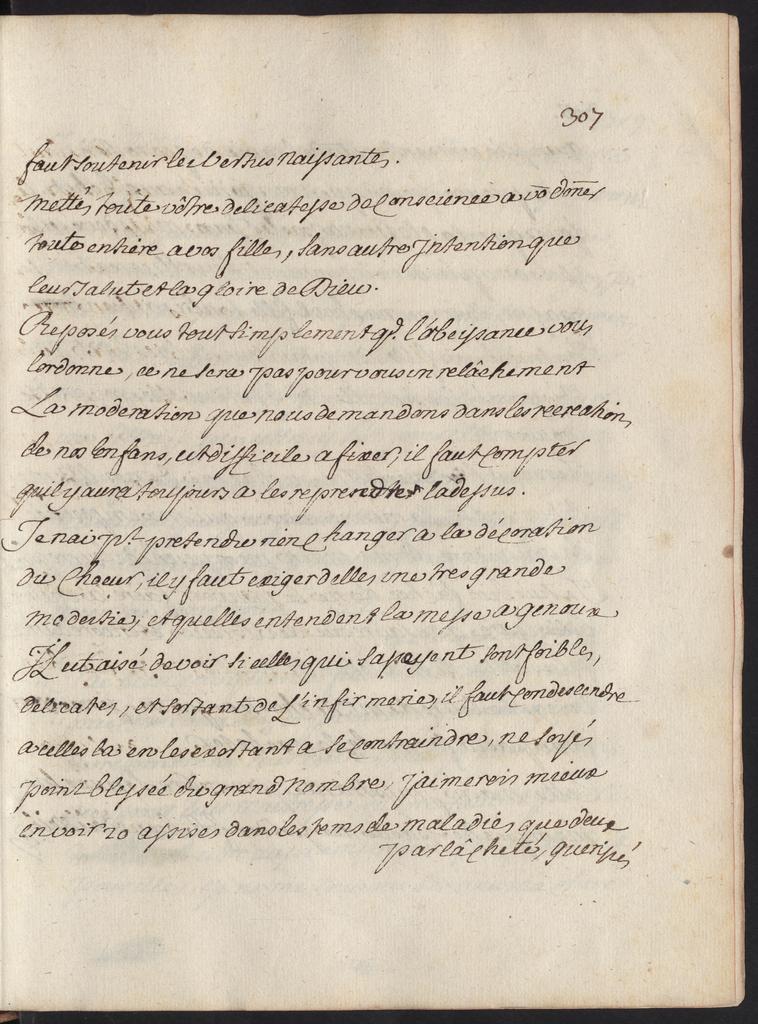 307
faut soutenir les vertus naissantes.
mettés toute vôtre delicatesse de Conscience a vo᷒ doñer
toute entiere a vos filles, sans autre jntention que
leur salut et la gloire de Dieu.
Reposés vous tout simplement qd. l'obeissance vous
l'ordonne, ce ne sera pas pour vous un relâchement
La moderation que nous demandons dans les recreations
de nos Enfans, est difficile a fixer, il faut Compter
quil y aura toujours a les reprendre la dessus.
Je nai pt. pretendu rien Changer a la décoration
du Choeur, il y faut exiger delles une tres grande
modestie, et quelles entendent la messe a genoux
Il est aisé de voir si celles qui sapuyent sont foibles,
delicates, et sortant de L'infirmerie, il faut Condescendre
a celles la en les exortant a se Contraindre, ne soyés
point blessée du grand nombre, j'aimerois mieux
en voir 20 assises dans les tems de maladies que deux
par lâcheté, guerissés